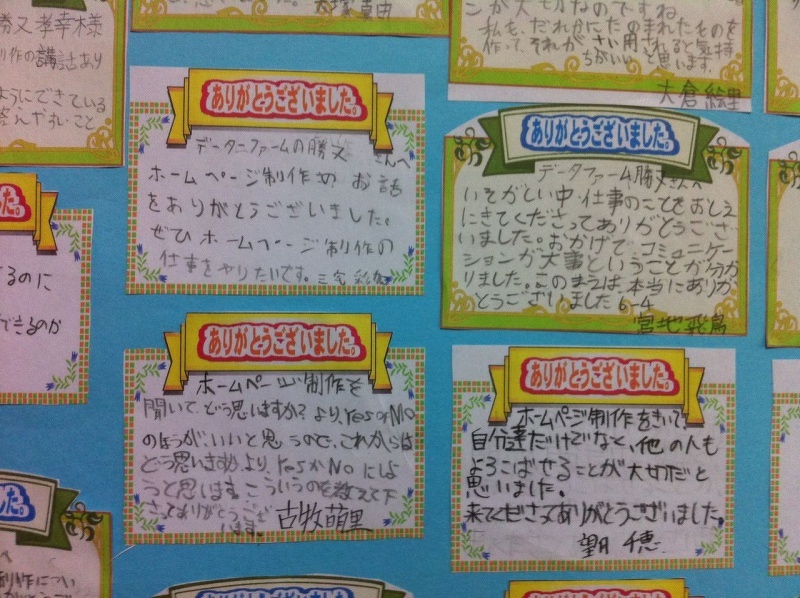 勝又孝幸様
制作の講話あり
ようにできている
ンが大切なのですね
私も、だれかにたのまれたものを
作って、それがさい用されると気持
ちがいいと思います。
大倉絵里
ありがとうございました。
データニファームの勝又さんへ
ホームページ制作のお話
をありがとうございました。
ぜひホームページ制作の
仕事をやりたいです。三宅
ありがとうございました。
データファーム勝又さんへ
いそがしい中仕事のことをおしえ
にきてくださってありがとうござ
いました。おかげで、コミュニケー
ションが大事ということが分か
りました。このまえは本当にありが
とうございました6-4
宮地飛鳥
した。
るのに
できるのか
ありがとうございました。
ホームページ制作を
聞いて、どう思いますか?より、Yes or No
のほうが、いいと思うので、これからは
どう思いますか、より、Yes か No にしよ
うと思います。こういうのを教えて下
さってありがとうござ
います。
古牧萌里
ありがとうございました。
ホームページ制作をきいて、
自分達だけでなく、他の人も
よろこばせることが大切だと
思いました。
来てくださってありがとうございました。
望月 穂
した。
制作につい
ありがとうございました。
ありがとうございました。